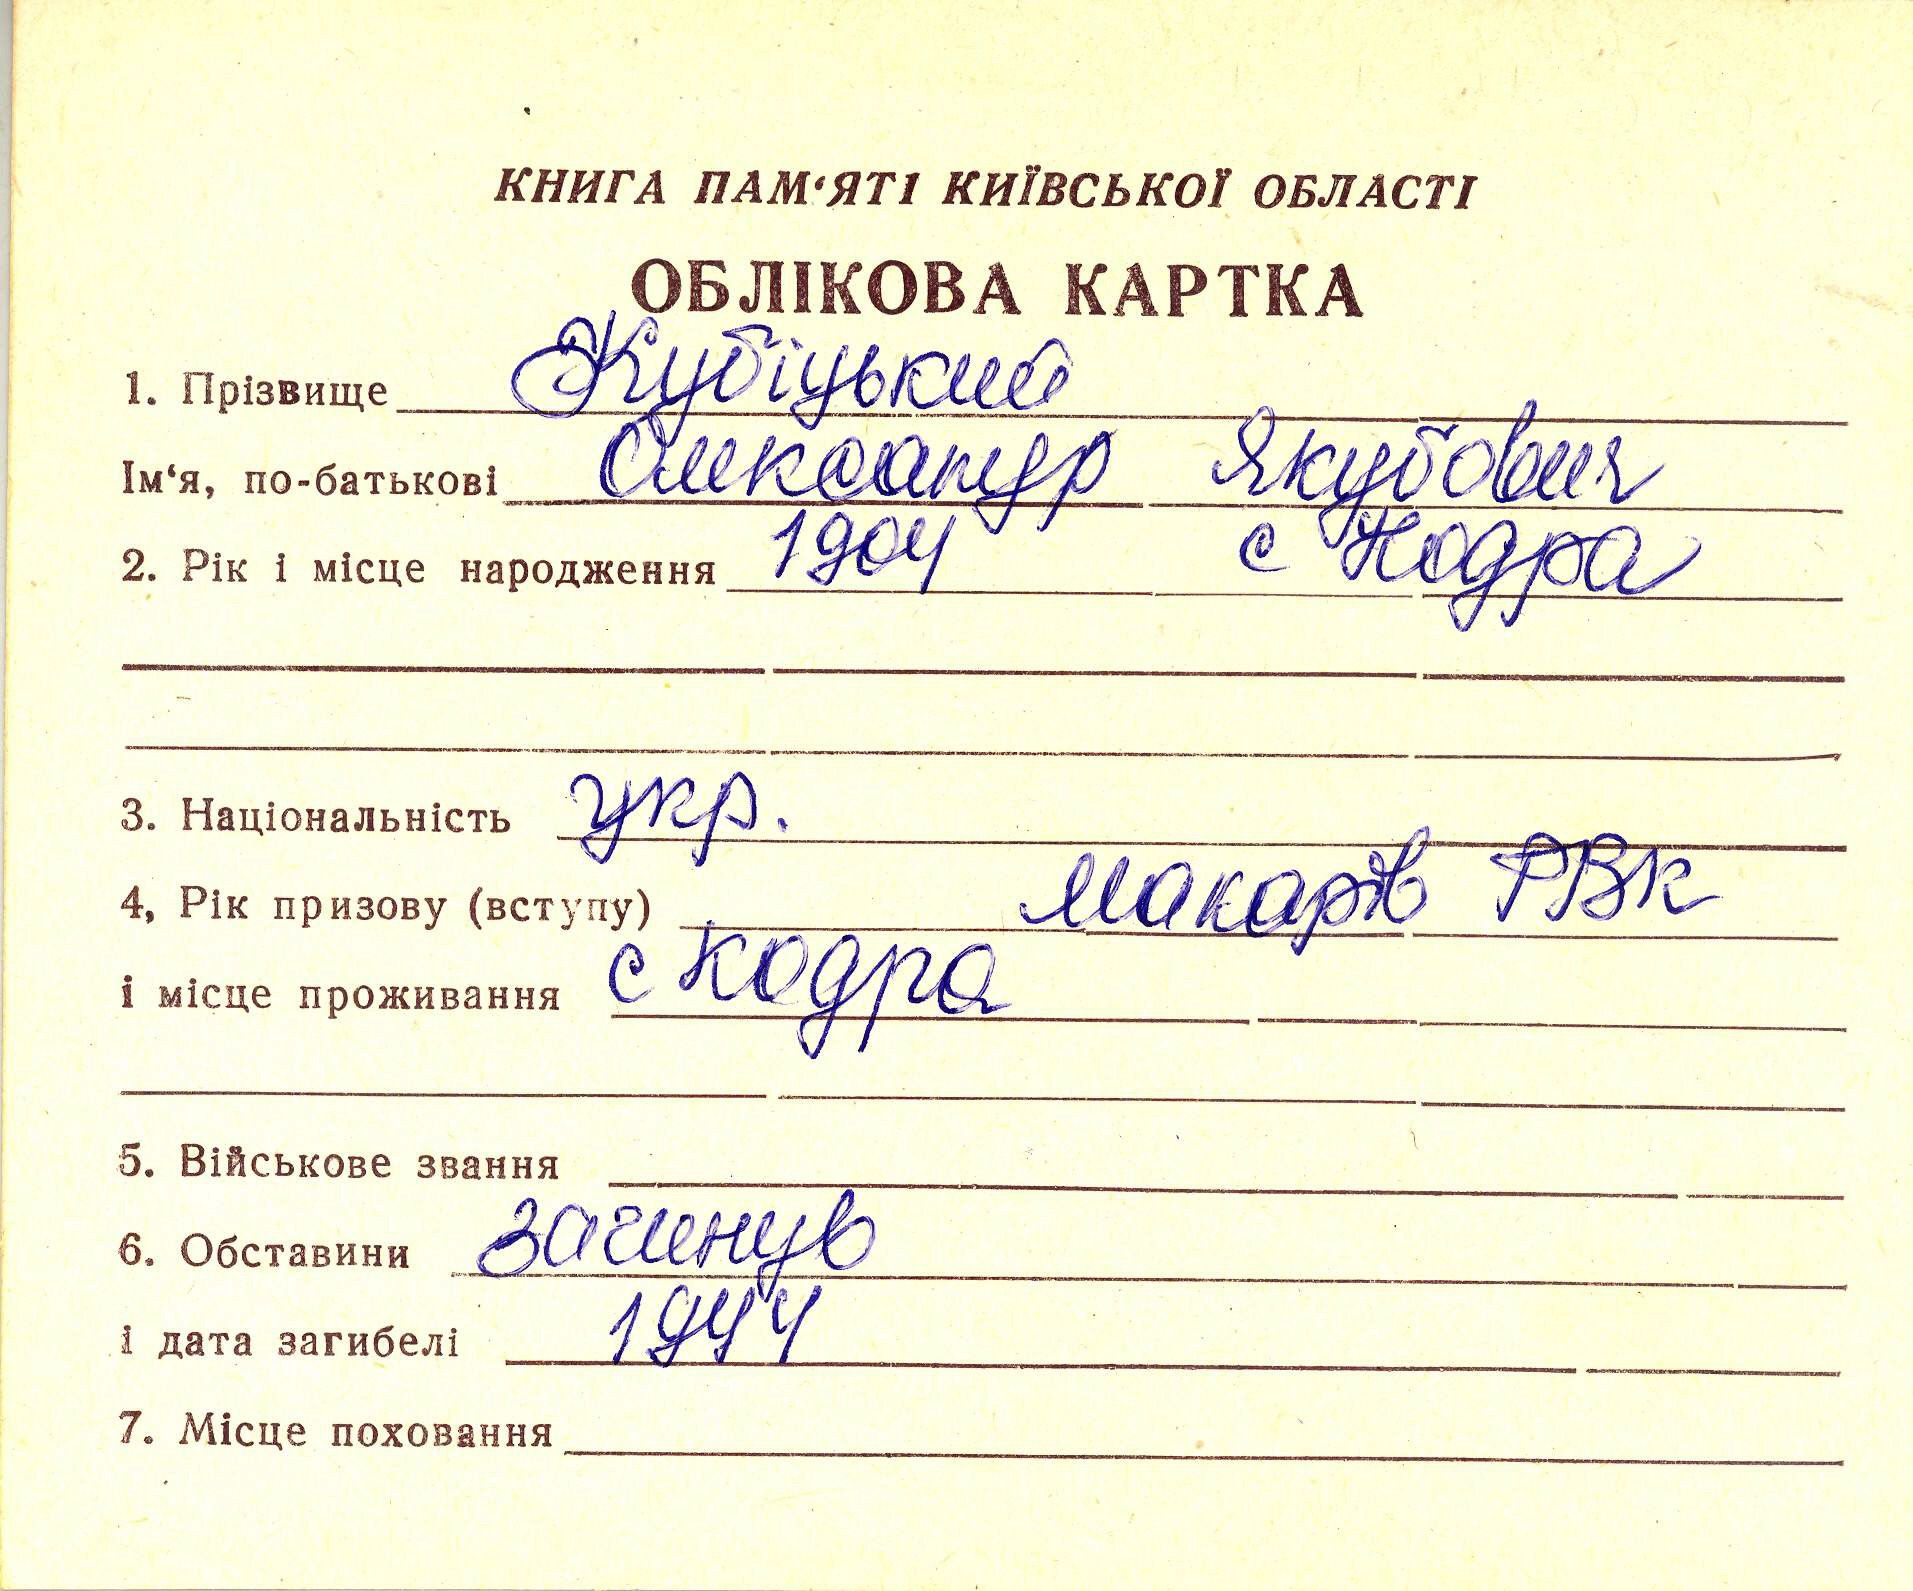 КНИГА ПАМ‘ЯТІ КИЇВСЬКОЇ ОБЛАСТІ
ОБЛІКОВА КАРТКА
1. Прізвище Кубіцький
Ім‘я, по-батькові Олександр Якубович
2. Рік і місце народження 1904 с Кодра
3. Національність укр.
4, Рік призову (вступу) Макарів РВК
і місце проживання с Кодра
5. Військове звання
6. Обставини загинув
і дата загибелі 1944
7. Місце поховання